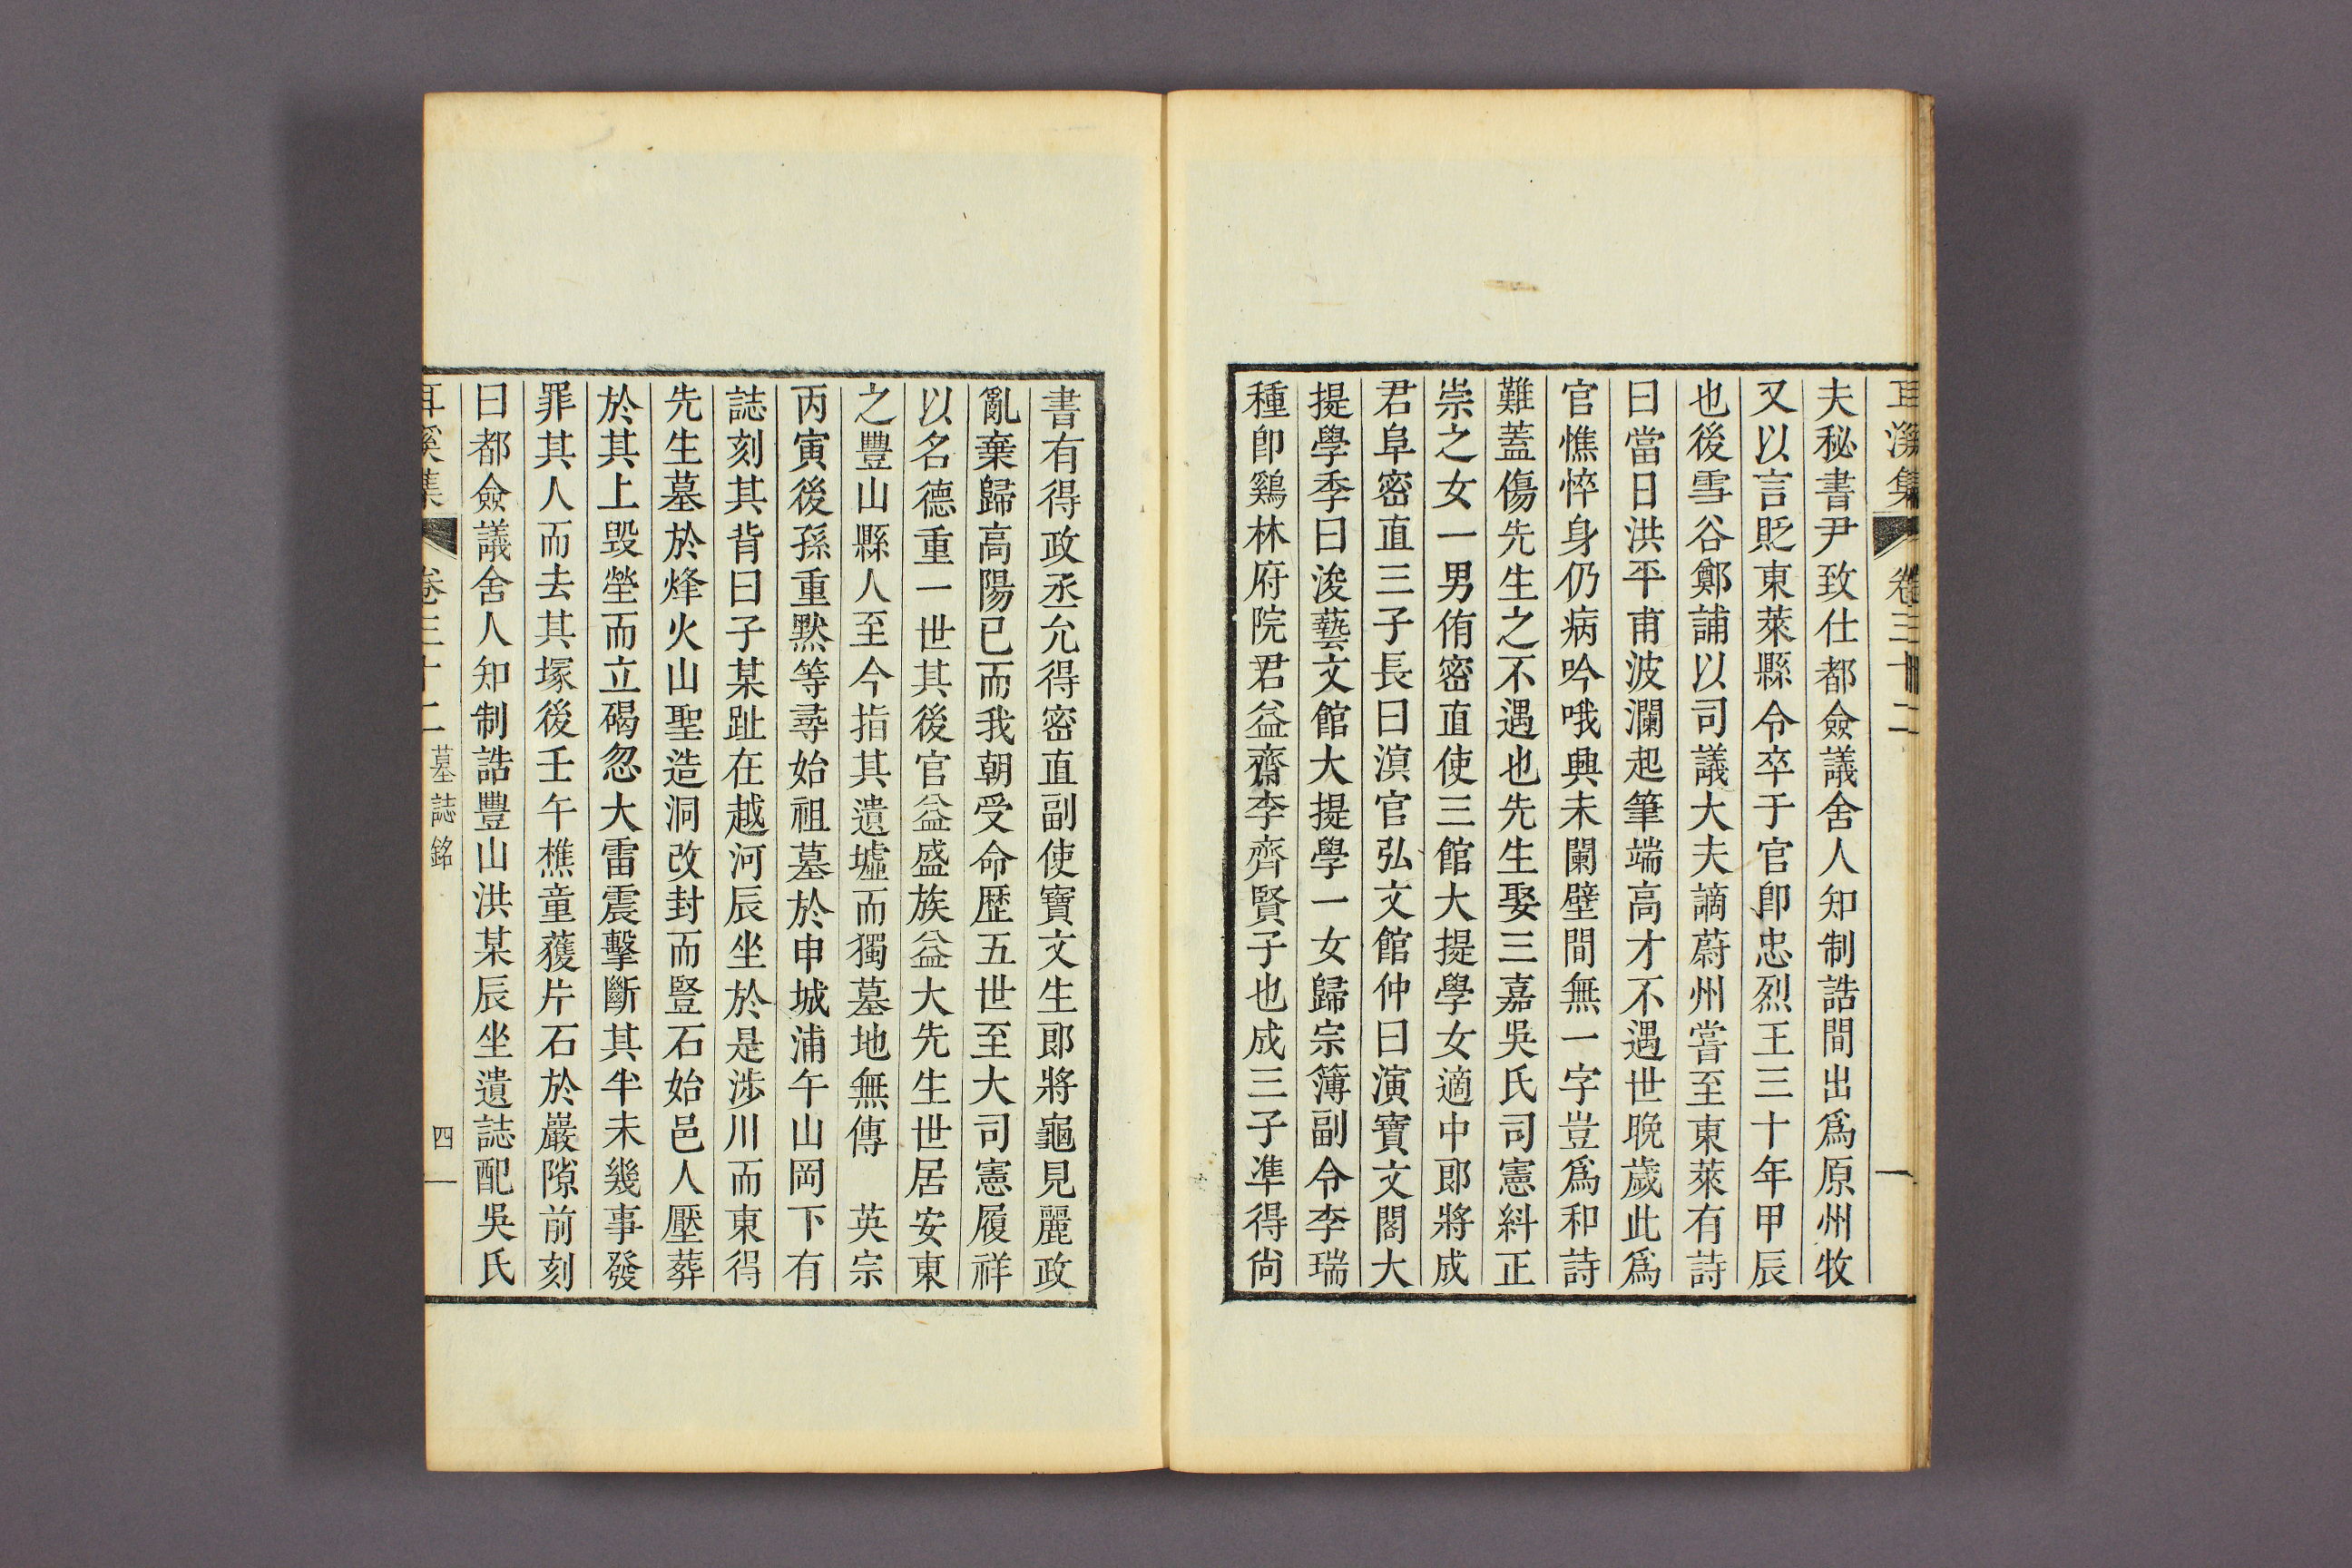 耳溪集 卷三十二
夫秘書尹致仕都僉議舍人知制誥間出爲原州牧
又以言貶東萊縣令卒于官卽忠烈王三十年甲辰
也後雪谷鄭誧以司議大夫謫蔚州嘗至東萊有詩
曰當日洪平甫波瀾起筆端高才不遇世晚歲此爲
官憔悴身仍病吟哦興未闌壁間無一字豈爲和詩
難蓋傷先生之不遇也先生娶三嘉吳氏司憲糾正
崇之女一男侑密直使三館大提學女適中郞將成
君阜密直三子長曰演官弘文館仲曰演寶文閣大
提學季曰浚藝文館大提學一女歸宗簿副令李瑞
種卽鷄林府院君益齋李齊賢子也成三子準得尙
書有得政丞允得密直副使寶文生郞將龜見麗政
亂棄歸高陽已而我朝受命歷五世至大司憲履祥
以名德重一世其後官益盛族益大先生世居安東
之豐山縣人至今指其遺墟而獨墓地無傳　英宗
丙寅後孫重默等尋始祖墓於申城浦午山岡下有
誌刻其背曰子某趾在越河辰坐於是涉川而東得
先生墓於烽火山聖造洞改封而竪石始邑人壓葬
於其上毁塋而立碣忽大雷震擊斷其半未幾事發
罪其人而去其塚後壬午樵童獲片石於巖隙前刻
曰都僉議舍人知制誥豐山洪某辰坐遺誌配吳氏
耳溪集 卷三十二 墓誌銘 四